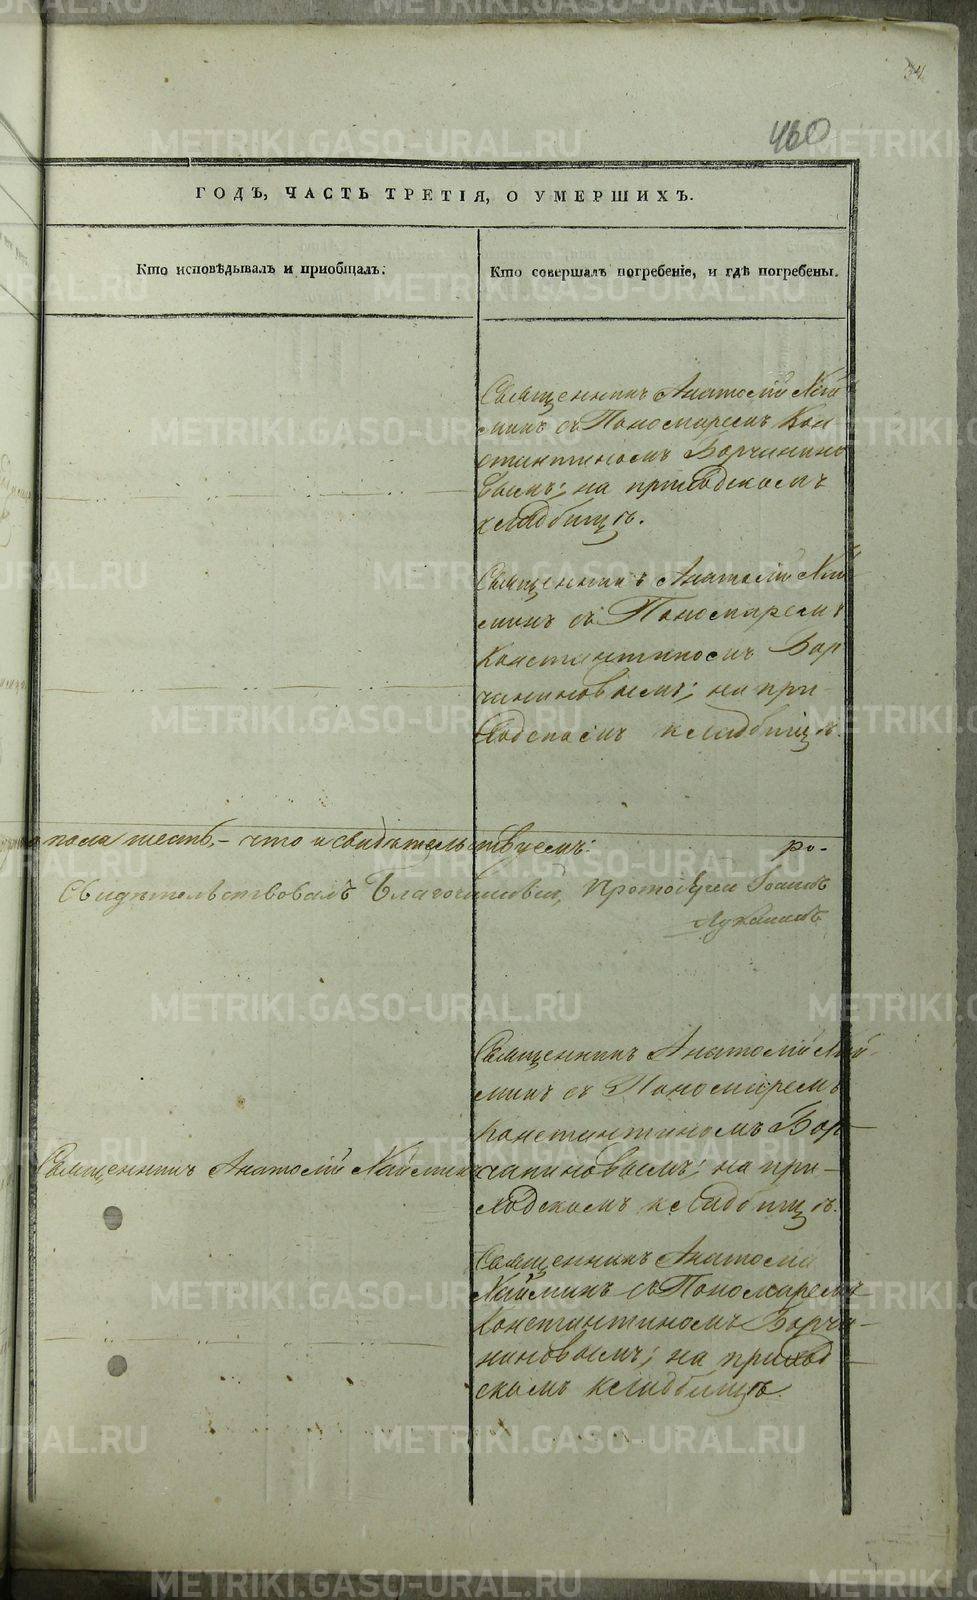 34
460
ГОДЪ, ЧАСТЬ ТРЕТІЯ, О УМЕРШИХЪ.
Кто исповѣдывалъ и приобщалъ.
Кто совершалъ погребеніе, и гдѣ погребены.
Священникъ Анатолій Най
минъ съ Пономаремъ Кон
стантиномъ Борчанино
вымъ; на приходскомъ
кладбищѣ.
Священникъ Анатолій Най
минъ съ Пономаремъ
Константиномъ Бор
чаниновымъ; на при-
ходскомъ кладбищѣ.
пола шесть, – что и свидѣтельствуемъ:
Свидѣтельствовалъ Благочинный, Протоіерей Іоаннъ
Священникъ Анатолій Най-
минъ съ Пономаремъ
Константиномъ Бор-
Священникъ Анатолій Найминъ
чаниновымъ; на при-
ходскомъ кладбищѣ.
Священникъ Анатолій
Найминъ съ Пономаремъ
Константиномъ Борча-
ниновымъ; на приход
скомъ кладбищѣ.
METRIKI.GASO-URAL.RU